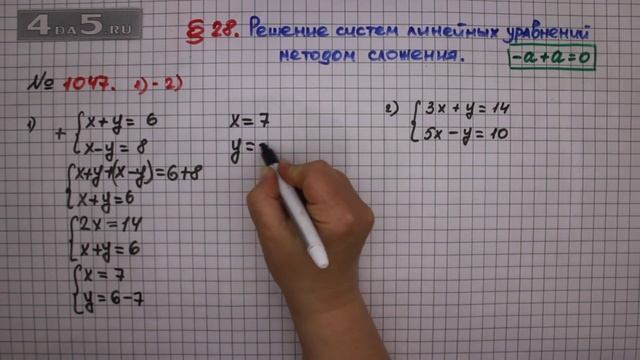 4DA5.RU
§ 28. Решение систем линейных уравнений
методом сложения. -a+a=0
№ 1047. 1)-2)
1) + { x+y= 6
x-y= 8
{ x+y+(x-y)=6+8
x+y=6
{ 2x=14
x+y=6
{ x=7
y=6-7
x=7
y=
2) { 3x+y=14
5x-y=10